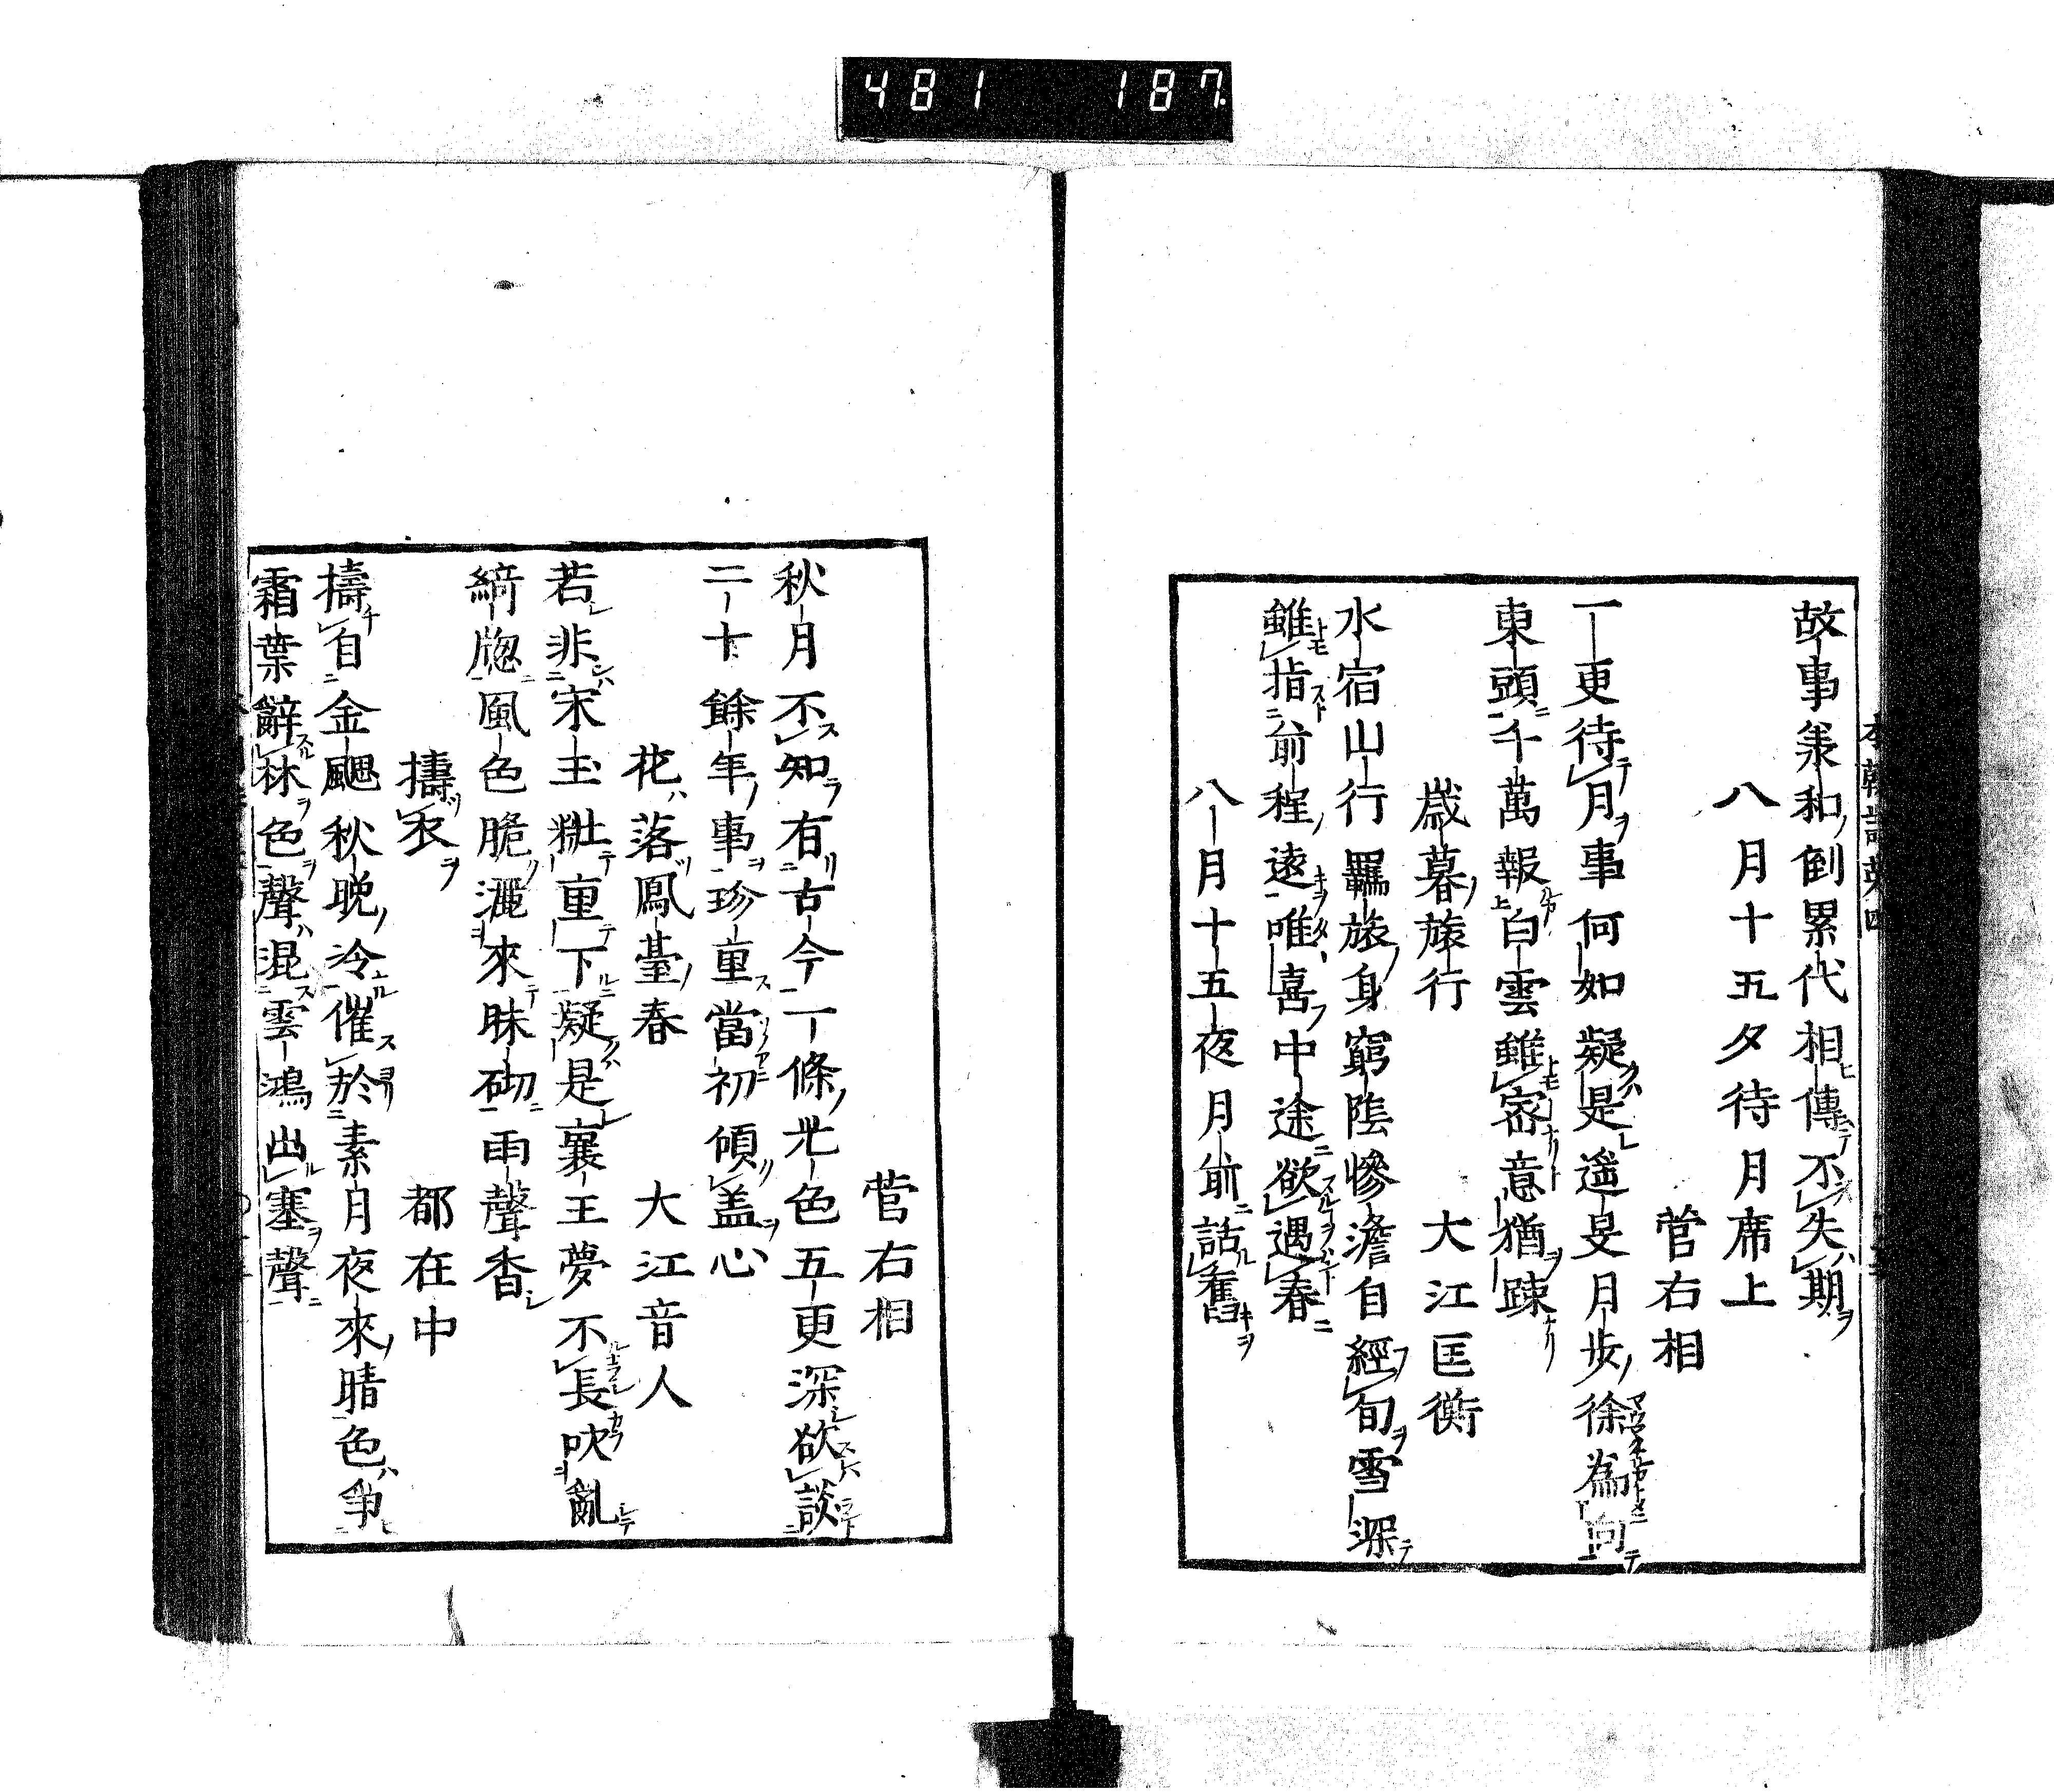 481 187
故事兼和倒累代相傳不失期
八月十五夕待月席上
菅右相
一更待月事何如疑是遥旻月歩徐為向
東頭千萬報白雲雖密意猶踈
歳暮旅行
大江匡衡
水宿山行羈旅身窮陰慘澹自經旬雪深
雖指前程遠唯喜中途欲遇春
八月十五夜月前話舊
菅右相
秋月不知有古今一條光色五更深欲談
二十餘年事珍重當初傾盖心
花落鳳臺春
大江音人
若非宋玉粧重下疑是襄王夢不長吹亂
綺牎風色脆灑來昧砌雨聲香
擣衣
都在中
擣自金颸秋晩冷催於素月夜來晴色爭
霜葉辭林色聲混雲鴻出塞聲